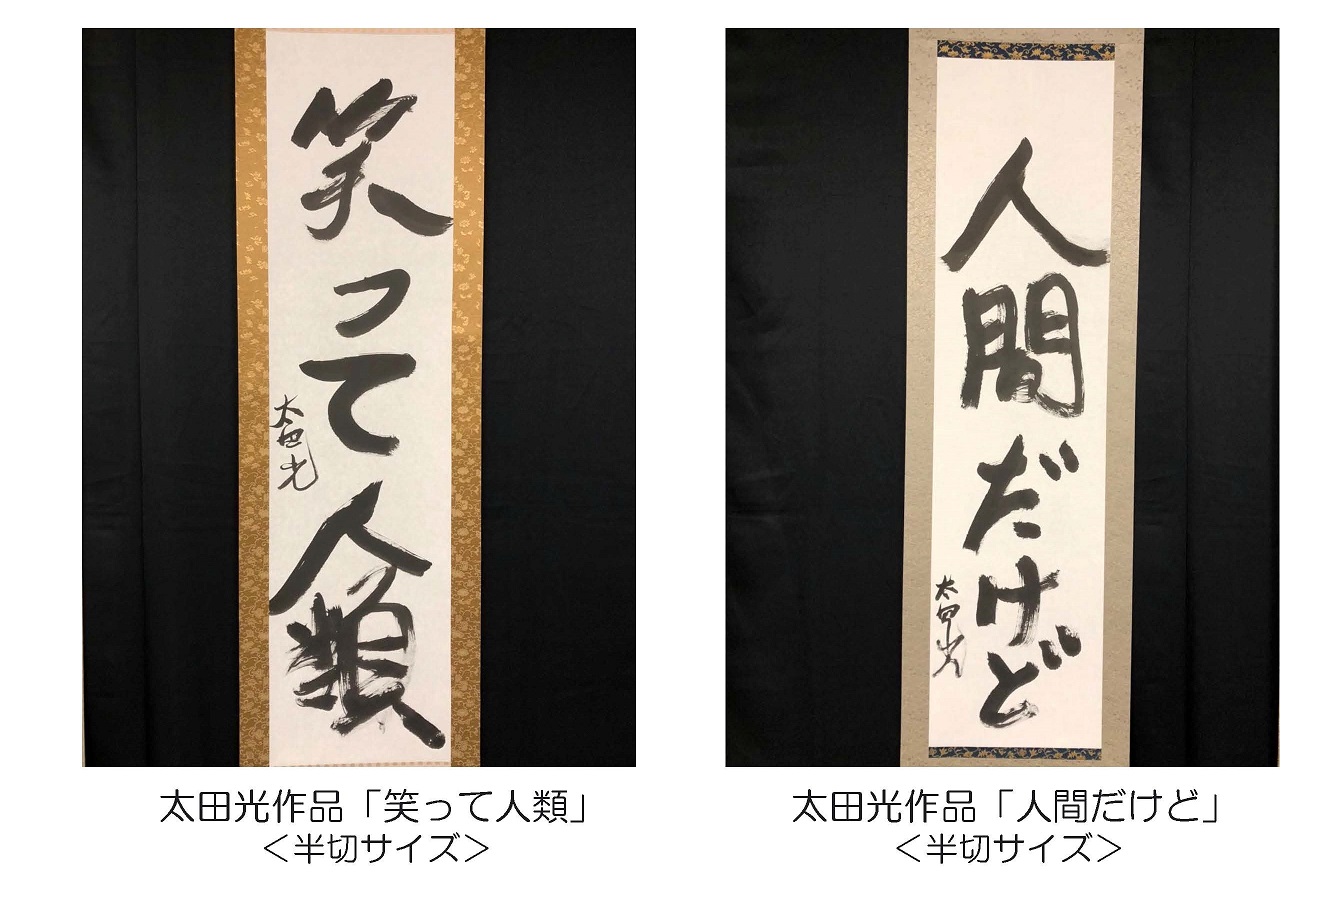 笑って人類
太田光
人間だけど
太田光
太田光作品「笑って人類」
＜半切サイズ＞
太田光作品「人間だけど」
＜半切サイズ＞